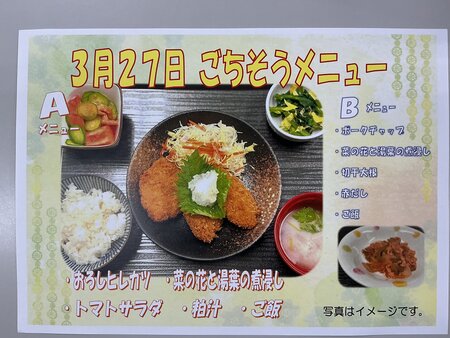 3月27日 ごちそうメニュー
A
メニュー
B メニュー
・ポークチャップ
・菜の花と湯葉の煮浸し
・切干大根
・赤だし
・ご飯
・おろしヒレカツ ・菜の花と湯葉の煮浸し
・トマトサラダ ・粕汁 ・ご飯
写真はイメージです。